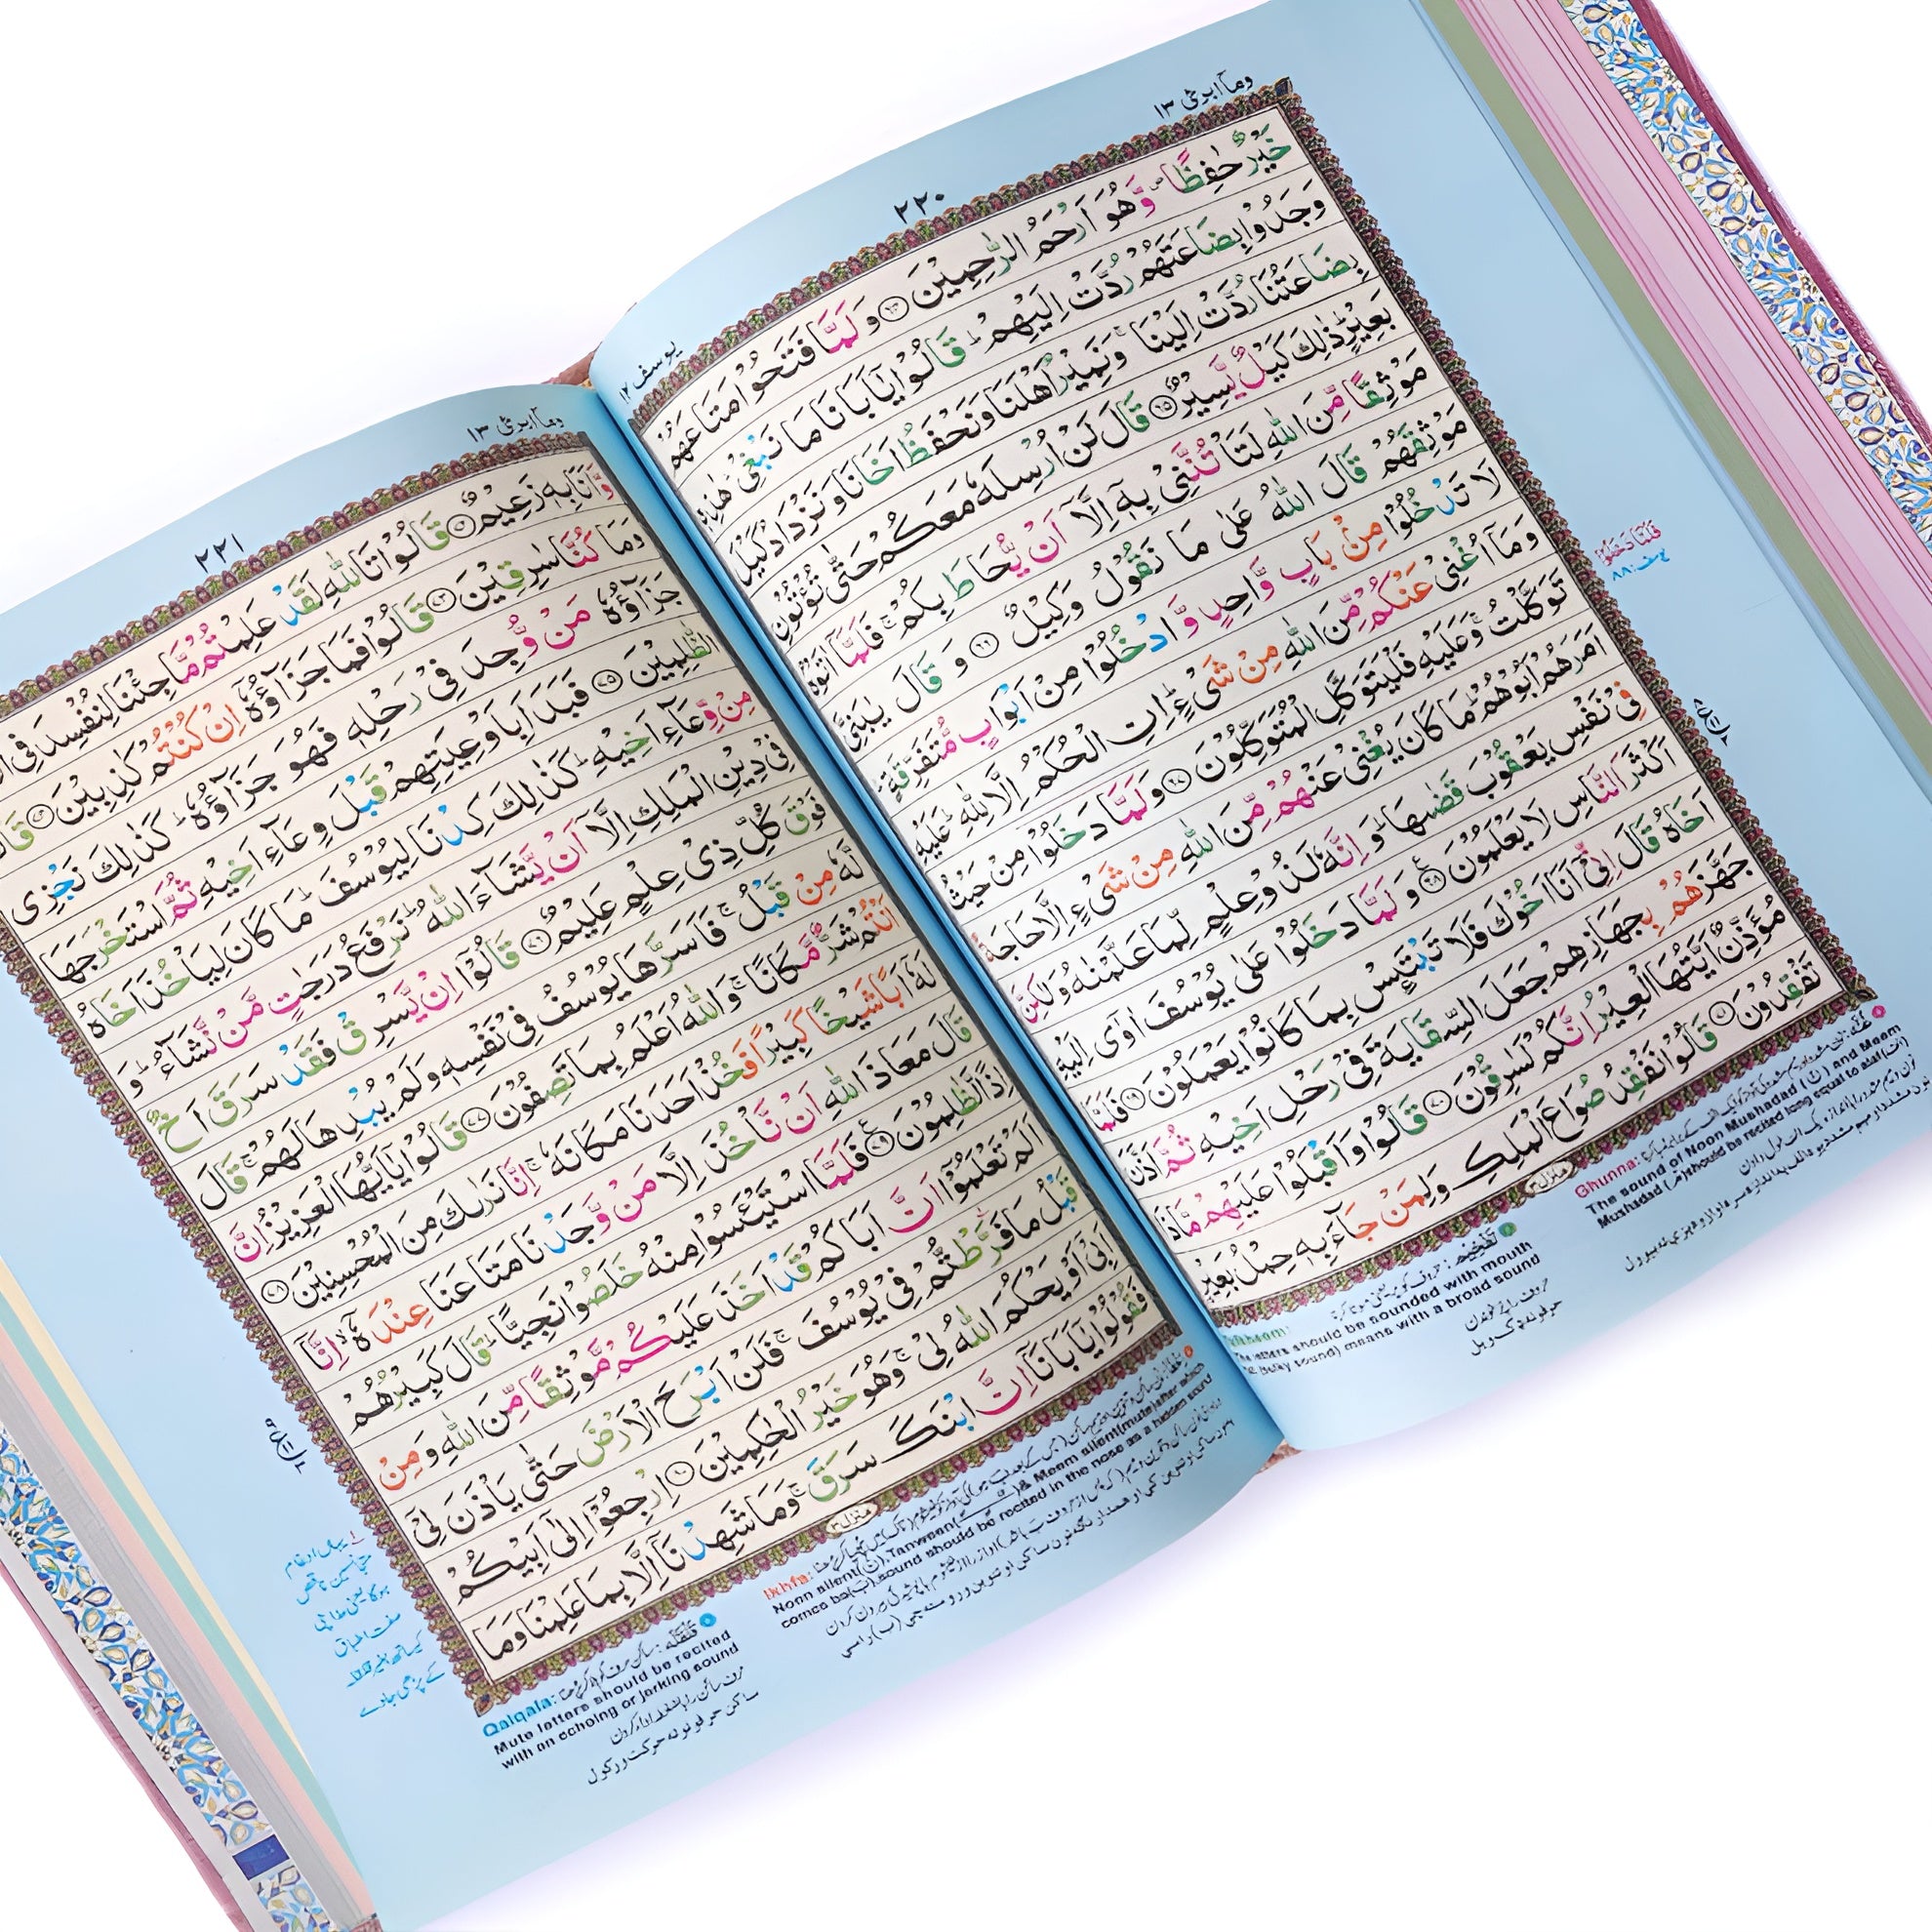 وماۤ ابرئ ١٣
٢٢٠
يوسف ١٢
خَيْرٌ حٰفِظًا ۪ وَّهُوَ اَرْحَمُ الرّٰحِمِيْنَ ﴿٦٤﴾ وَ لَمَّا فَتَحُوْا مَتَاعَهُمْ
وَجَدُوْا بِضَاعَتَهُمْ رُدَّتْ اِلَيْهِمْ ؕ قَالُوْا يٰۤاَبَانَا مَا نَبْغِىْ ؕ هٰذِهٖ
بِضَاعَتُنَا رُدَّتْ اِلَيْنَا ۚ وَنَمِيْرُ اَهْلَنَا وَنَحْفَظُ اَخَانَا وَنَزْدَادُ كَيْلَ
بَعِيْرٍ ؕ ذٰلِكَ كَيْلٌ يَّسِيْرٌ ﴿٦٥﴾ قَالَ لَنْ اُرْسِلَهٗ مَعَكُمْ حَتّٰى تُؤْتُوْنِ
مَوْثِقًا مِّنَ اللّٰهِ لَتَاْتُنَّنِىْ بِهٖۤ اِلَّاۤ اَنْ يُّحَاطَ بِكُمْ ۚ فَلَمَّاۤ اٰتَوْهُ
مَوْثِقَهُمْ قَالَ اللّٰهُ عَلٰى مَا نَقُوْلُ وَكِيْلٌ ﴿٦٦﴾ وَ قَالَ يٰبَنِىَّ
لَا تَدْخُلُوْا مِنْۢ بَابٍ وَّاحِدٍ وَّ ادْخُلُوْا مِنْ اَبْوَابٍ مُّتَفَرِّقَةٍ ؕ
وَمَاۤ اُغْنِىْ عَنْكُمْ مِّنَ اللّٰهِ مِنْ شَىْءٍ ؕ اِنِ الْحُكْمُ اِلَّا لِلّٰهِ ؕ عَلَيْهِ
تَوَكَّلْتُ ۚ وَعَلَيْهِ فَلْيَتَوَكَّلِ الْمُتَوَكِّلُوْنَ ﴿٦٧﴾ وَ لَمَّا دَخَلُوْا مِنْ حَيْثُ
اَمَرَهُمْ اَبُوْهُمْ ؕ مَا كَانَ يُغْنِىْ عَنْهُمْ مِّنَ اللّٰهِ مِنْ شَىْءٍ اِلَّا حَاجَةً
فِىْ نَفْسِ يَعْقُوْبَ قَضٰىهَا ؕ وَ اِنَّهٗ لَذُوْ عِلْمٍ لِّمَا عَلَّمْنٰهُ وَلٰكِنَّ
اَكْثَرَ النَّاسِ لَا يَعْلَمُوْنَ ﴿٦٨﴾ وَ لَمَّا دَخَلُوْا عَلٰى يُوْسُفَ اٰوٰۤى اِلَيْهِ
اَخَاهُ قَالَ اِنِّىْۤ اَنَا اَخُوْكَ فَلَا تَبْتَئِسْ بِمَا كَانُوْا يَعْمَلُوْنَ ﴿٦٩﴾ فَلَمَّا
جَهَّزَهُمْ بِجَهَازِهِمْ جَعَلَ السِّقَايَةَ فِىْ رَحْلِ اَخِيْهِ ثُمَّ اَذَّنَ
مُؤَذِّنٌ اَيَّتُهَا الْعِيْرُ اِنَّكُمْ لَسٰرِقُوْنَ ﴿٧٠﴾ قَالُوْا وَ اَقْبَلُوْا عَلَيْهِمْ مَّاذَا
تَفْقِدُوْنَ ﴿٧١﴾ قَالُوْا نَفْقِدُ صُوَاعَ الْمَلِكِ وَلِمَنْ جَآءَ بِهٖ حِمْلُ بَعِيْرٍ
منزل ٣
Ghunna:
The sound of Noon Mushadad (نّ) and Meem
Mushdad (مّ) should be recited long equal to alaf
تَفْخِيْم
letters should be sounded with mouth
means with a broad sound
وماۤ ابرئ ١٣
٢٢١
وَّاَنَا بِهٖ زَعِيْمٌ ﴿٧٢﴾ قَالُوْا تَاللّٰهِ لَقَدْ عَلِمْتُمْ مَّا جِئْنَا لِنُفْسِدَ فِى
وَمَا كُنَّا سٰرِقِيْنَ ﴿٧٣﴾ قَالُوْا فَمَا جَزَآؤُهٗۤ اِنْ كُنْتُمْ كٰذِبِيْنَ ﴿٧٤﴾
جَزَآؤُهٗ مَنْ وُّجِدَ فِىْ رَحْلِهٖ فَهُوَ جَزَآؤُهٗ ؕ كَذٰلِكَ نَجْزِى
الظّٰلِمِيْنَ ﴿٧٥﴾ فَبَدَاَ بِاَوْعِيَتِهِمْ قَبْلَ وِعَآءِ اَخِيْهِ ثُمَّ اسْتَخْرَجَهَا
مِنْ وِّعَآءِ اَخِيْهِ ؕ كَذٰلِكَ كِدْنَا لِيُوْسُفَ ؕ مَا كَانَ لِيَاْخُذَ اَخَاهُ
فِىْ دِيْنِ الْمَلِكِ اِلَّاۤ اَنْ يَّشَآءَ اللّٰهُ ؕ نَرْفَعُ دَرَجٰتٍ مَّنْ نَّشَآءُ ؕ وَ
فَوْقَ كُلِّ ذِىْ عِلْمٍ عَلِيْمٌ ﴿٧٦﴾ قَالُوْۤا اِنْ يَّسْرِقْ فَقَدْ سَرَقَ اَخٌ
لَّهٗ مِنْ قَبْلُ ۚ فَاَسَرَّهَا يُوْسُفُ فِىْ نَفْسِهٖ وَلَمْ يُبْدِهَا لَهُمْ ۚ قَالَ
اَنْتُمْ شَرٌّ مَّكَانًا ۚ وَاللّٰهُ اَعْلَمُ بِمَا تَصِفُوْنَ ﴿٧٧﴾ قَالُوْا يٰۤاَيُّهَا الْعَزِيْزُ اِنَّ
لَهٗۤ اَبًا شَيْخًا كَبِيْرًا فَخُذْ اَحَدَنَا مَكَانَهٗ ۚ اِنَّا نَرٰىكَ مِنَ الْمُحْسِنِيْنَ ﴿٧٨﴾
قَالَ مَعَاذَ اللّٰهِ اَنْ نَّاْخُذَ اِلَّا مَنْ وَّجَدْنَا مَتَاعَنَا عِنْدَهٗۤ ۙ اِنَّاۤ
اِذًا لَّظٰلِمُوْنَ ﴿٧٩﴾ فَلَمَّا اسْتَيْئَسُوْا مِنْهُ خَلَصُوْا نَجِيًّا ؕ قَالَ كَبِيْرُهُمْ
اَلَمْ تَعْلَمُوْۤا اَنَّ اَبَاكُمْ قَدْ اَخَذَ عَلَيْكُمْ مَّوْثِقًا مِّنَ اللّٰهِ وَ مِنْ
قَبْلُ مَا فَرَّطْتُّمْ فِىْ يُوْسُفَ ۚ فَلَنْ اَبْرَحَ الْاَرْضَ حَتّٰى يَاْذَنَ لِىْۤ
اَبِىْۤ اَوْ يَحْكُمَ اللّٰهُ لِىْ ۚ وَهُوَ خَيْرُ الْحٰكِمِيْنَ ﴿٨٠﴾ اِرْجِعُوْۤا اِلٰٓى اَبِيْكُمْ
فَقُوْلُوْا يٰۤاَبَانَاۤ اِنَّ ابْنَكَ سَرَقَ ۚ وَمَا شَهِدْنَاۤ اِلَّا بِمَا عَلِمْنَا وَمَا
منزل ٣
Ikhfa:
Noon silent(نْ), Tanween & Meem silent(mute) after which
comes ba(ب) sound should be recited in the nose as a hidden sound
Qalqala: قَلْقَلَه
Mute letters should be recited
with an echoing or jerking sound